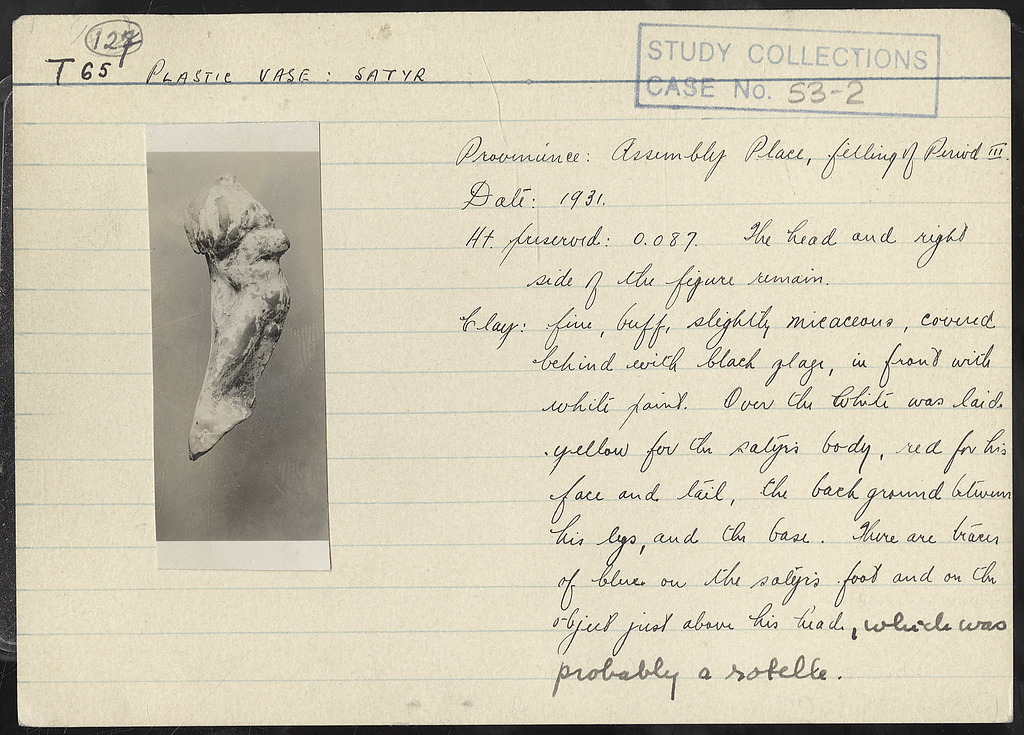 127
T 65 PLASTIC VASE: SATYR
STUDY COLLECTIONS
CASE No. S3-2
Provenience: Assembly Place, filling of Period III.
Date: 1931.
Ht. preserved: 0.087. The head and right
side of the figure remain.
Clay: fine, buff, slightly micaceous, covered
behind with black glaze, in front with
white paint. Over the white was laid
yellow for the satyr's body, red for his
face and tail, the back ground between
his legs, and the base. There are traces
of blue on the satyr's foot and on the
object just above his head, which was
probably a rotelle.